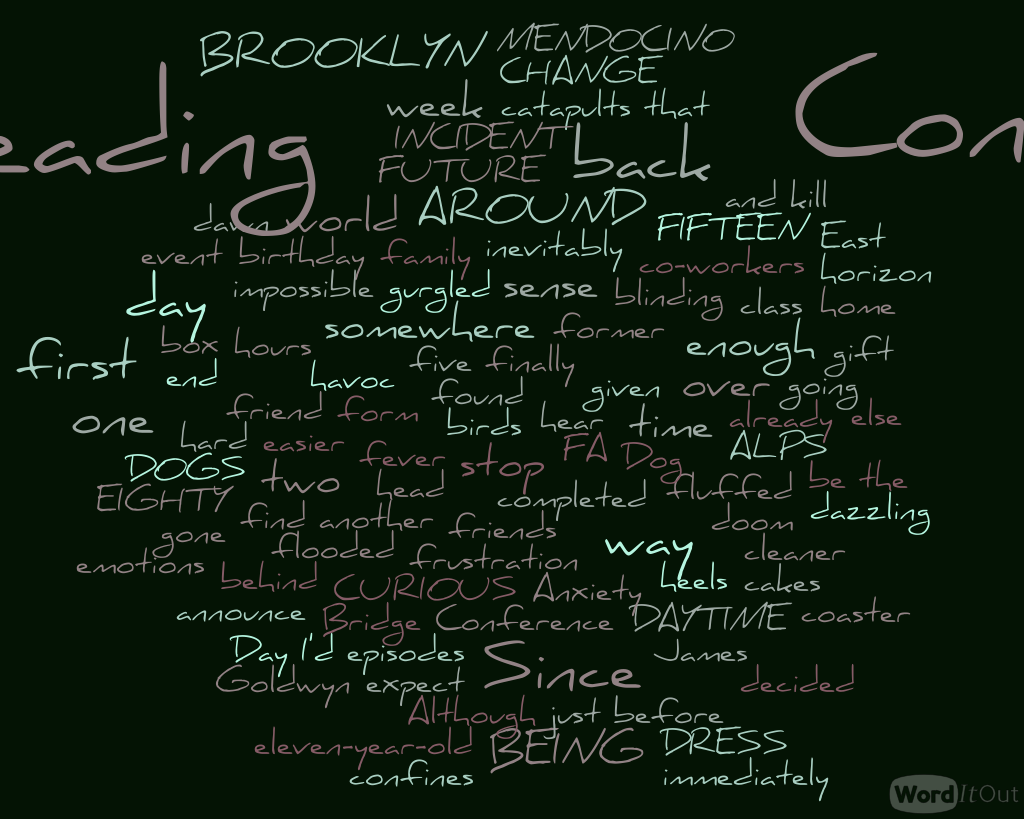 BROOKLYN MENDOCINO
CHANGE
eading Con
week catapults that
INCIDENT back
FUTURE
AROUND and kill
dawn world FIFTEEN East
event birthday family inevitably co-workers horizon
day impossible gurgled sense blinding class home
somewhere former
first box hours five finally enough gift
end havoc found given over going
one friend form birds hear time already else
hard easier FA Dog ALPS
DOGS fever stop
EIGHTY two head completed fluffed be the
find another friends doom dazzling
gone flooded frustration way cleaner
emotions behind CURIOUS Anxiety heels cakes
announce Bridge Conference DAYTIME coaster
Day I'd episodes Since James
Goldwyn expect decided
Although just before
eleven-year-old BEING DRESS
confines immediately
WordItOut